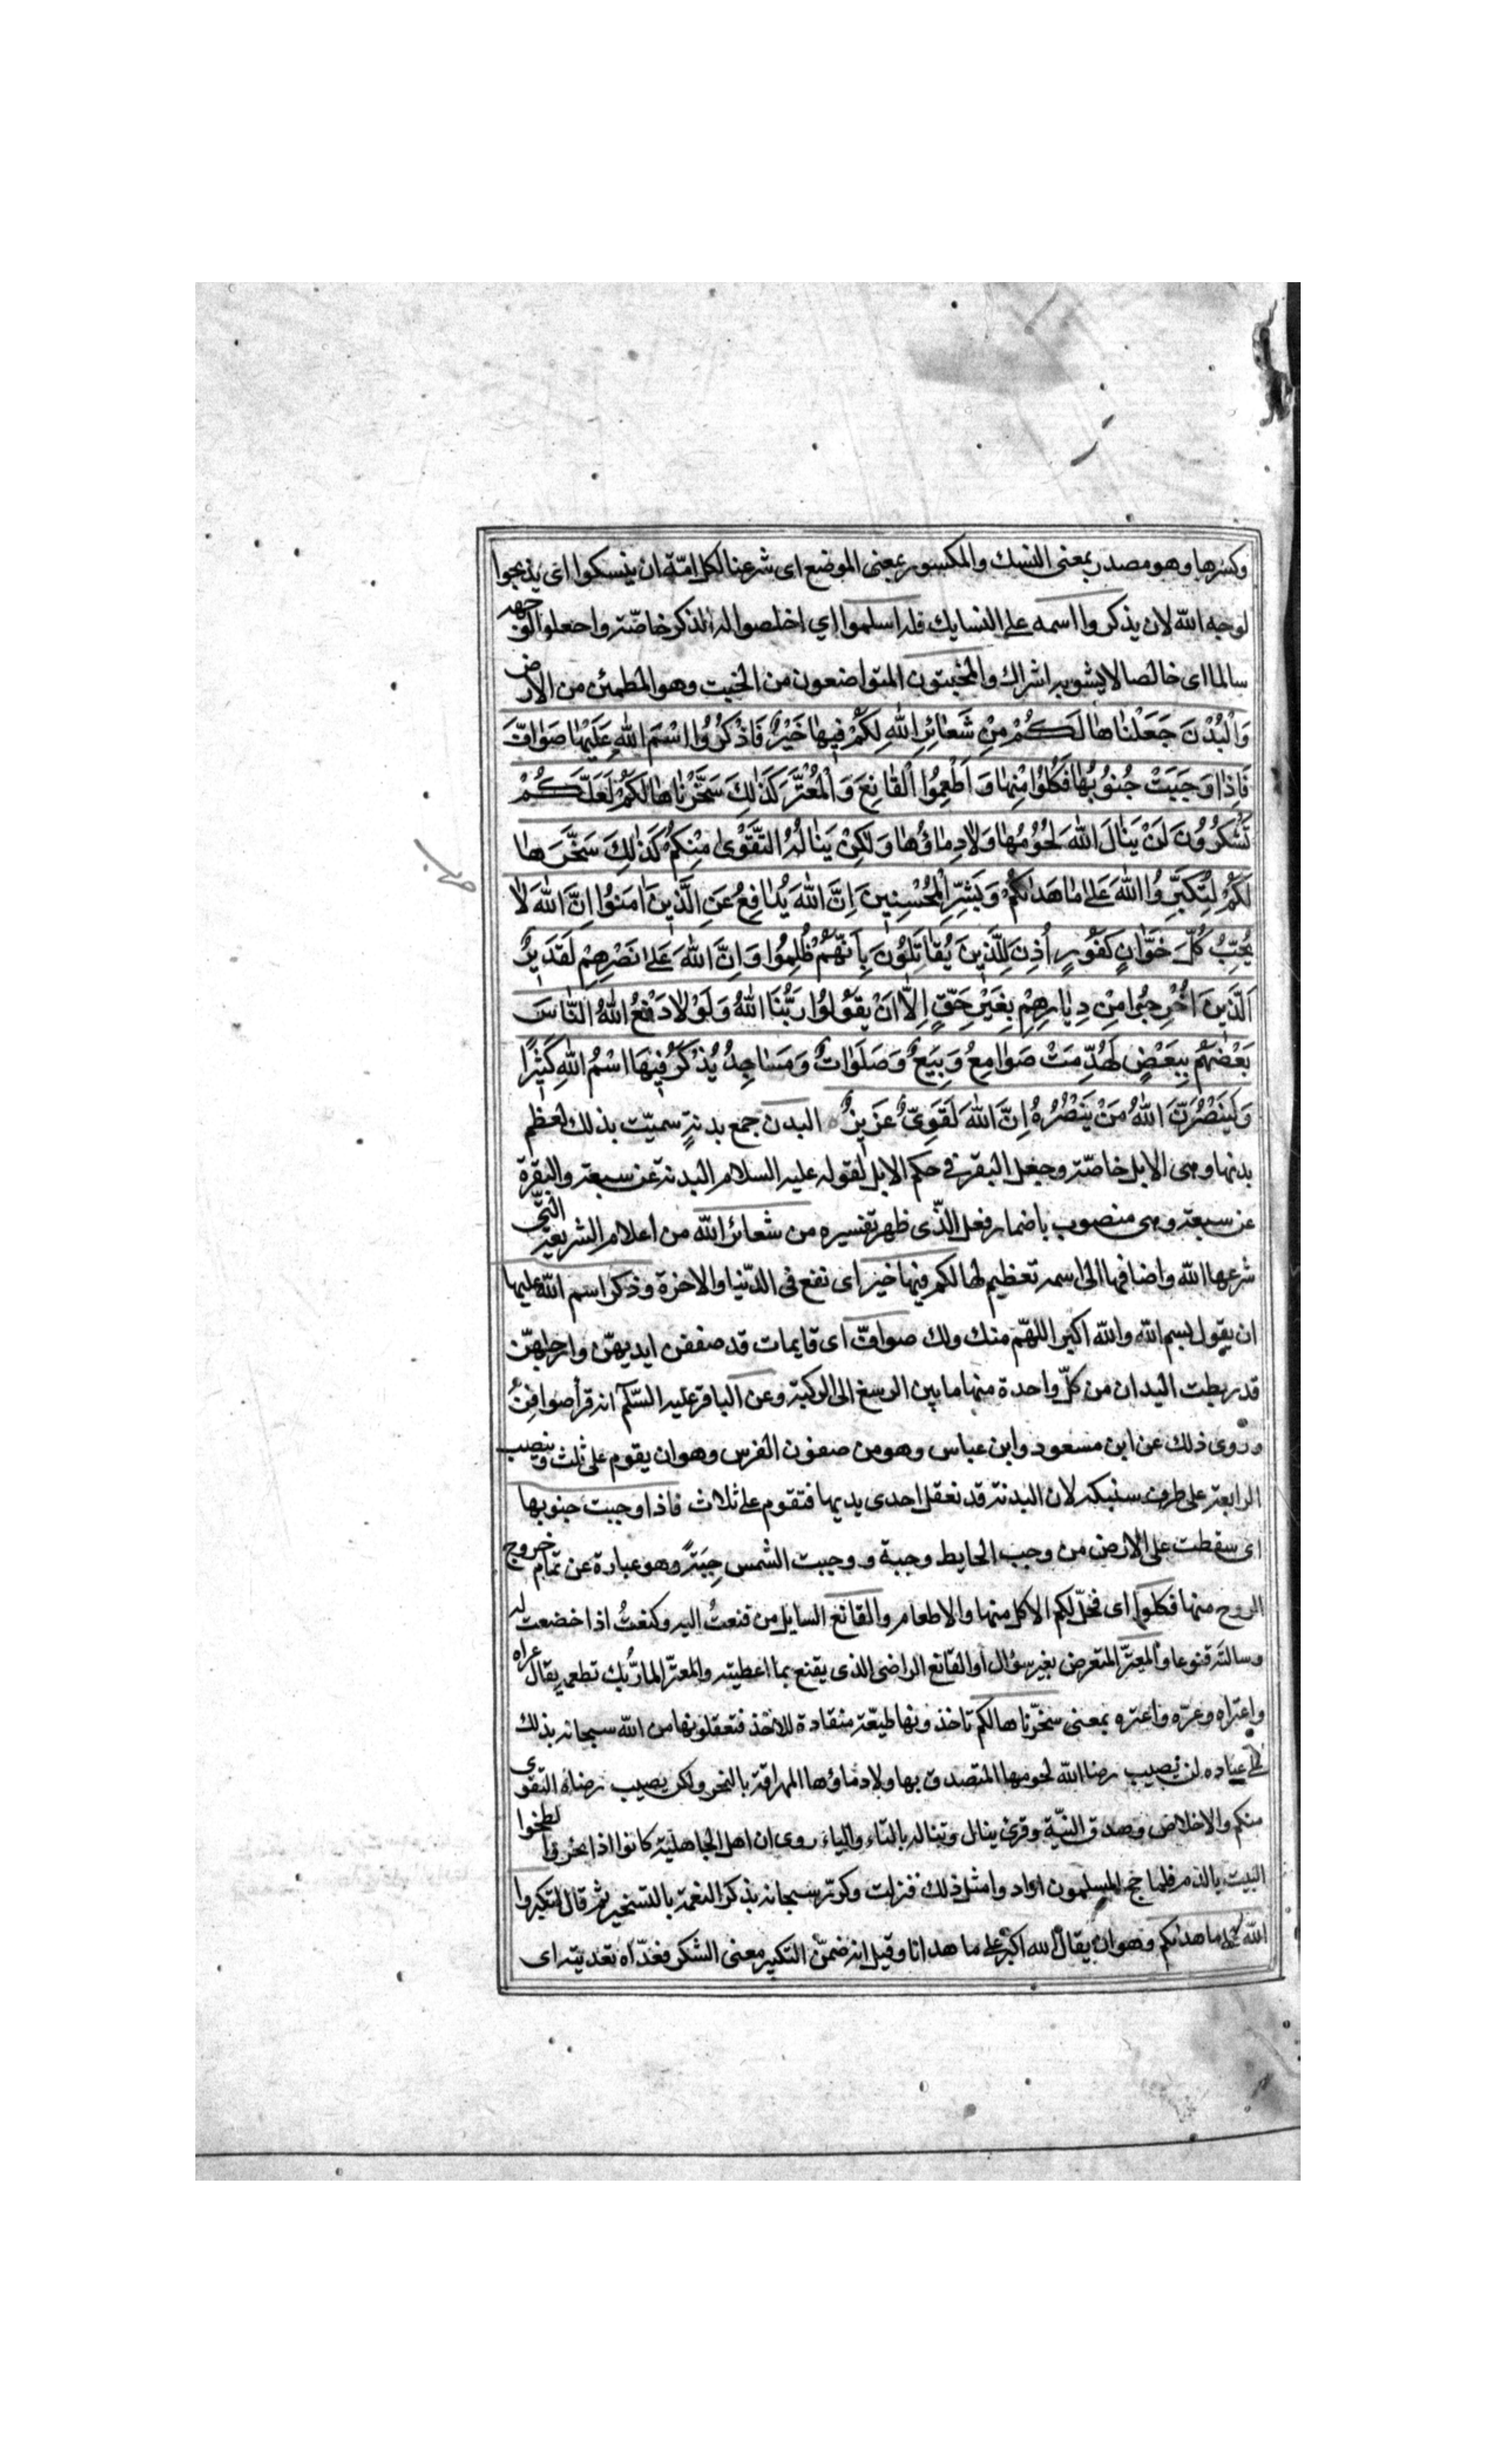 وكسرها وهو مصدر بمعنى النسك والمكسور بمعنى الموضع اى شرعنا لكل امّة ان ينسكوا اى يذبحوا
لوجه الله لان يذكروا اسمه على النسايك فله اسلموا اي اخلصوا له الذكر خاصّة واجعلوا الوجه
سالما اى خالصا لا يشوبه اشراك والمخبتون المتواضعون من الخبت وهو المطمئن من الارض
وَالْبُدْنَ جَعَلْنٰاهٰا لَكُمْ مِنْ شَعٰائِرِ اللّٰهِ لَكُمْ فِيهٰا خَيْرٌ فَاذْكُرُوا اسْمَ اللّٰهِ عَلَيْهٰا صَوٰافَّ
فَاِذٰا وَجَبَتْ جُنُوبُهٰا فَكُلُوا مِنْهٰا وَاَطْعِمُوا الْقٰانِعَ وَالْمُعْتَرَّ كَذٰلِكَ سَخَّرْنٰاهٰا لَكُمْ لَعَلَّكُمْ
تَشْكُرُونَ لَنْ يَنٰالَ اللّٰهَ لُحُومُهٰا وَلٰا دِمٰاؤُهٰا وَلٰكِنْ يَنٰالُهُ التَّقْوٰى مِنْكُمْ كَذٰلِكَ سَخَّرَهٰا
لَكُمْ لِتُكَبِّرُوا اللّٰهَ عَلىٰ مٰا هَدٰىكُمْ وَبَشِّرِ الْمُحْسِنِينَ اِنَّ اللّٰهَ يُدٰافِعُ عَنِ الَّذِينَ اٰمَنُوا اِنَّ اللّٰهَ لٰا
يُحِبُّ كُلَّ خَوّٰانٍ كَفُورٍ اُذِنَ لِلَّذِينَ يُقٰاتَلُونَ بِاَنَّهُمْ ظُلِمُوا وَاِنَّ اللّٰهَ عَلىٰ نَصْرِهِمْ لَقَدِيرٌ
اَلَّذِينَ اُخْرِجُوا مِنْ دِيٰارِهِمْ بِغَيْرِ حَقٍّ اِلّٰا اَنْ يَقُولُوا رَبُّنَا اللّٰهُ وَلَوْلٰا دَفْعُ اللّٰهِ النّٰاسَ
بَعْضَهُمْ بِبَعْضٍ لَهُدِّمَتْ صَوٰامِعُ وَبِيَعٌ وَصَلَوٰاتٌ وَمَسٰاجِدُ يُذْكَرُ فِيهَا اسْمُ اللّٰهِ كَثِيرًا
وَلَيَنْصُرَنَّ اللّٰهُ مَنْ يَنْصُرُهُ اِنَّ اللّٰهَ لَقَوِيٌّ عَزِيزٌ البدن جمع بدنةٍ سميّت بذلك لعظم
بدنها وهى الابل خاصّة وجعل البقر فى حكم الابل لقوله عليه السلام البدنة عن سبعة والبقرة
عن سبعة وهى منصوب باضمار فعل الّذى ظهر تفسيره من شعائر الله من اعلام الشريعة الّتي
شرعها الله واضافها الى اسمه تعظيم لها لكم فيها خير اى نفع فى الدّنيا والاخرة وذكر اسم الله عليها
ان يقول بسم الله والله اكبر اللهمّ منك ولك صوافّ اى قايمات قد صففن ايديهنّ وارجلهنّ
قد ربطت اليدان من كلّ واحدة منها ما بين الرسغ الى الركبة وعن الباقر عليه السّلم انه قرأ صوافِنَ
وروى ذلك عن ابن مسعود وابن عباس وهو من صفون الفرس وهو ان يقوم على ثلث وينصب
الرابعة على طرف سنبكه لان البدنة قد تعقل احدى يديها فتقوم على ثلاث فاذا وجبت جنوبها
اى سقطت على الارض من وجب الحايط وجبة ووجبت الشمس جِبَةً وهو عبارة عن تمام خروج
الروح منها فكلوا اى فحلّ لكم الاكل منها والاطعام والقانع السايل من قنعتُ اليه وكنعتُ اذا خضعت له
وسالته قنوعا والمعترّ المتعرض بغير سؤال او القانع الراضى الذى يقنع بما اعطيته والمعترّ المارّ بك تطعمه يقال عراه
واعتراه وعرّه واعتره بمعنى سخّرناها لكم تاخذونها طيعّة منقادة للاخذ فتعقلونها من الله سبحانه بذلك
على عباده لن تصيب رضا الله لحومها المتصدق بها ولا دماؤها المهراقة بالنحر ولكن يصيب رضاه التقوى
منكم والاخلاص وصدق النيّة وقرئ ينال وتناله بالتاء والياء روى ان اهل الجاهليّة كانوا اذا نحروا لطخوا
البيت بالدم فلما حج المسلمون ارادوا مثل ذلك فنزلت وكرّر سبحانه بذكر النعمة بالتسخير ثم قال لتكبروا
الله على ما هدٰىكم وهو ان يقال الله اكبر على ما هدانا وقيل انه ضمّن التكبير معنى الشكر فعدّاه تعديته اى